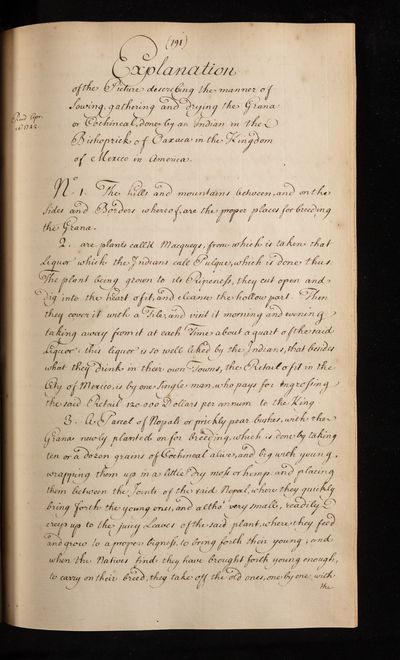 (191)
Explanation
of the Picture describing the manner of
Sowing, gathering and Drying the Grana
or Cochineal, done by an Indian in the
Bishoprick of Oaxaca in the Kingdom
of Mexico in America.
Read Apr.
1742.
No. 1. The hills and mountains between, and on the
sides and Borders whereof, are the proper places for breeding
the Grana.
2. are plants call'd Macqueys, from which is taken that
Liquor which the Indians call Pulque, which is done thus.
The plant being grown to its Ripeness, they cut open and
Dig into the heart of it, and cleanse the hollow part. Then
they cover it with a Tile, and visit it morning and evening
taking away from it at each Time about a quart of the said
Liquor. this liquor is so well liked by the Indians, that besides
what they drink in their own Towns, the Retail of it in the
City of Mexico, is by one single man, who pays for Ingrossing
the said Retail 120 000 Dollars per annum to the King
3. A Parcel of Nopals or prickly pear bushes, with the
Grana newly planted on for breeding, which is done by taking
ten or a dozen grains of Cochineal alive, and big with young,
wrapping them up in a little Dry moss or hemp, and placing
them between the Joints of the said Nopal, where they quickly
bring forth the young ones, and altho' very small, readily
creep up to the juicy Leaves of the said plant, where they feed
and grow to a proper bigness, to bring forth their young; and
when the Natives find they have brought forth young enough,
to carry on their breed, they take off the old ones, one by one, with
the